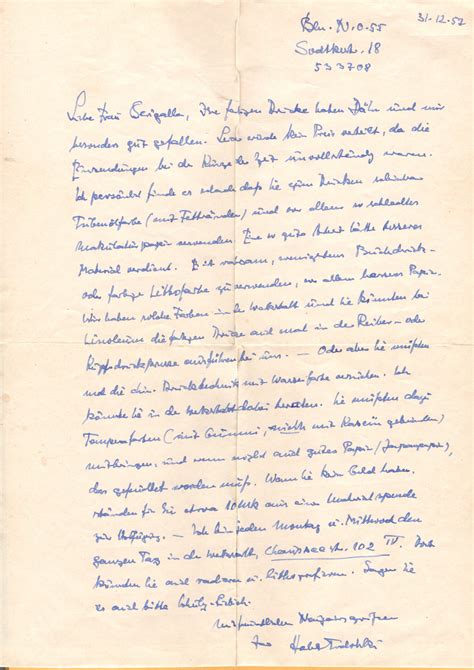 Bln. N.O.55
31.12.52
Sodtkestr. 18
533708
Liebe Frau Serigalla, Ihre farbigen Drucke haben Dähn und mir
besonders gut gefallen. Leider wurde kein Preis verteilt, da die
Einsendungen bei der Kürze der Zeit unvollständig waren.
Ich persönlich finde es schade daß Sie zum Drucken scheinbar
Tubenölfarbe (mit Fetträndern) und vor allem so schlechtes
Makulaturpapier verwenden. Eine so gute Arbeit hätte besseres
Material verdient. Es ist ratsam, wenigstens Buchdruck-
oder farbige Lithofarbe zu verwenden, vor allem besseres Papier.
Wir haben solche Farben in der Werkstatt und Sie könnten bei
Linoleum die farbigen Drucke auch mal in der Reiber- oder
Kupferdruckpresse ausführen bei uns. — Oder aber Sie müßten
mal die chin. Drucktechnik mit Wasserfarbe versuchen. Ich
könnte Sie in der Werkstatt dabei beraten. Sie müßten dazu
Temperafarben (mit Gummi, nicht mit Kasein gebunden)
mitbringen, und wenn möglich auch gutes Papier (Japanpapier),
das gefeuchtet werden muß. Wenn Sie kein Geld haben,
ständen für Sie etwa 10 MK aus einer Materialspende
zur Verfügung. — Ich bin jeden Montag u. Mittwoch den
ganzen Tag in der Werkstatt, Chausseestr. 102 IV. Dort
könnten Sie auch radieren u. lithografieren. Sagen Sie
es auch bitte Schulz-Liebich.
Mit freundlichen Neujahrsgrüßen